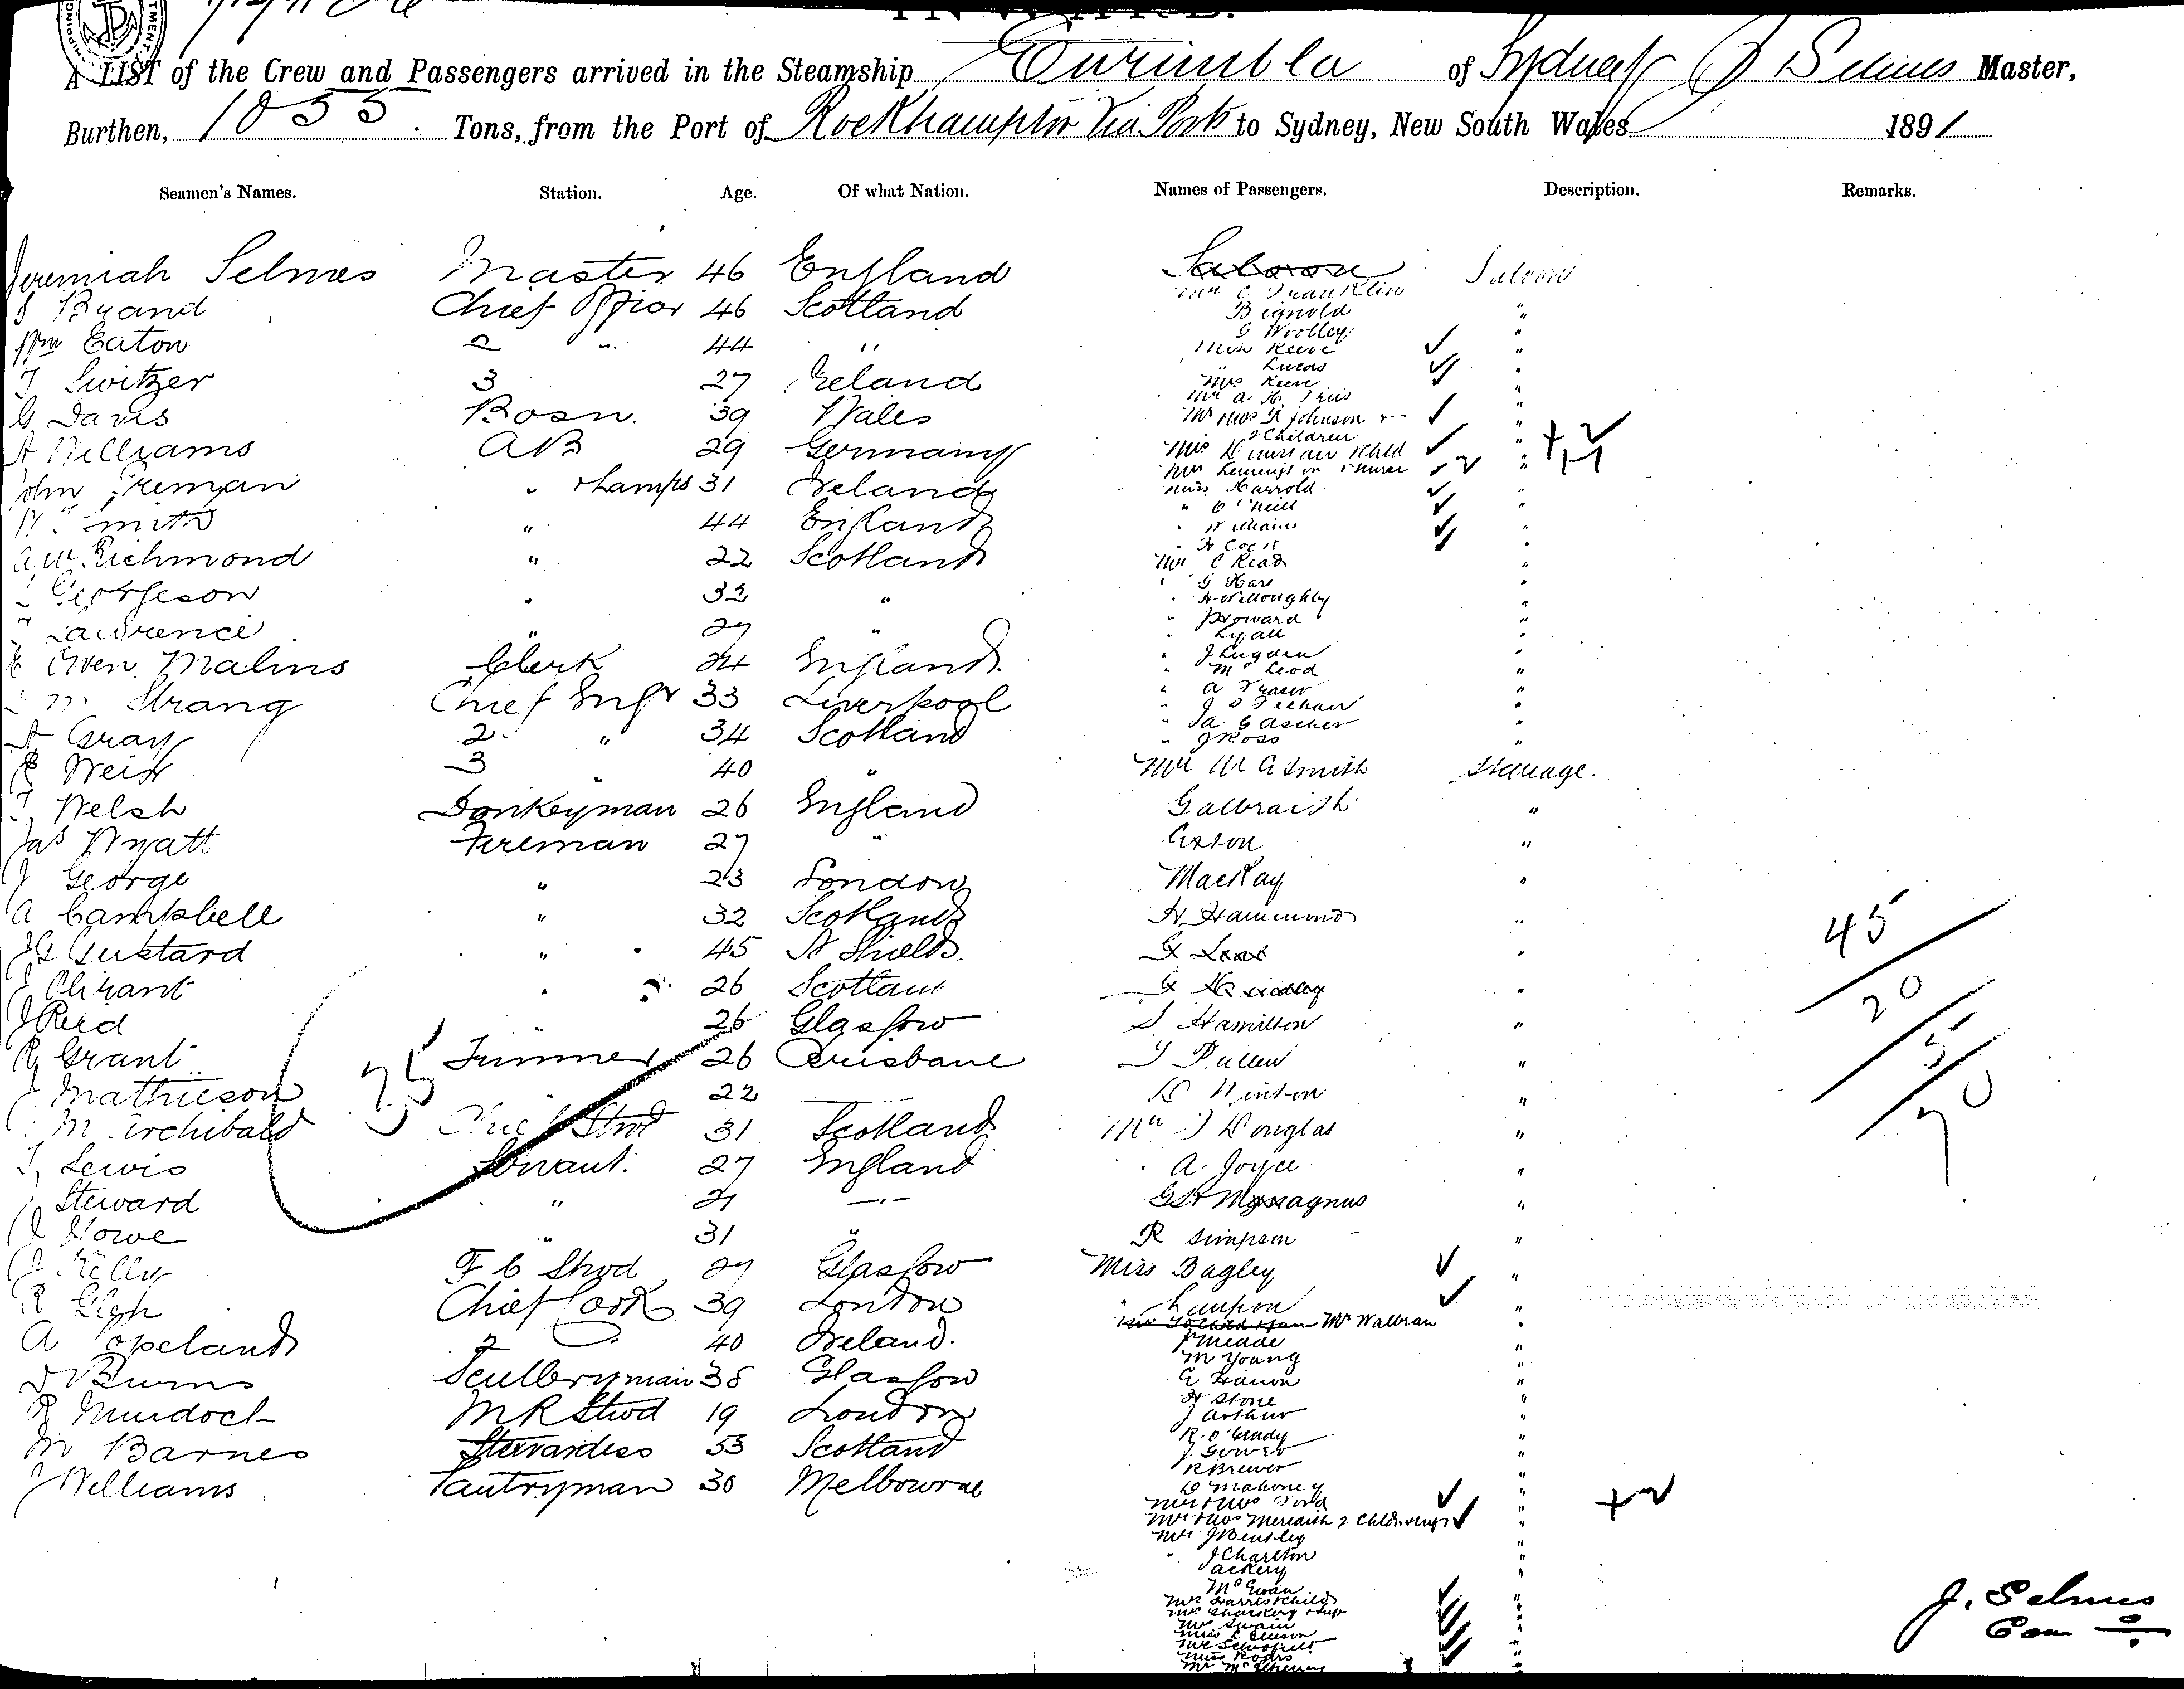 INWARD.
A LIST of the Crew and Passengers arrived in the Steamship Eurimbla of Sydney J Selmes Master,
Burthen, 1055. Tons, from the Port of Rockhampton Via Ports to Sydney, New South Wales 1891
Seamen's Names. Station. Age. Of what Nation. Names of Passengers. Description. Remarks.
Jeremiah Selmes Master 46 England
Saloon Saloon
Mr C Franklin
Brand Chief Officer 46 Scotland
Bignold "
G Woolley "
Wm Eaton 2 " 44 "
Miss Reeve "
" Lucas "
T Switzer 3 27 Ireland
Mrs Reeve "
Mr A H "
G Davis Bosn. 39 Wales
Mr & Mrs Johnson + "
2 Children
A Williams AB 29 Germany
Child "
+ 2
Mrs & nurse "
John Freman " & Lamps 31 Ireland
Miss Harrold "
" O'Neill "
W Smith " 44 England
" Williams "
" H Cock "
A W Richmond " 22 Scotland
Mr C Read "
" G Hart "
Georgeson " 32 "
" H Willoughby "
" Howard "
Lawrence " 27 "
" Lyall "
" J Lugden "
Owen Malins Clerk 24 England
" McLeod "
" A Fraser "
M Strang Chief Engr 33 Liverpool
" J Feehan "
" Gascher "
A Gray 2 " 34 Scotland
" J Ross "
R Weir 3 " 40 "
Mr W G Smith Steerage.
T Welsh Donkeyman 26 England
Galbraith "
Jas Wyatt Fireman 27 "
Axton "
J George " 23 London
MacKay "
A Campbell " 32 Scotland
H Hammond "
45
J G Gustard " 45 N Shields
G "
Oliphant " 26 Scotland
G "
20
J Reid " 26 Glasgow
S. Hamilton "
5
R Grant Trimmer 26 Brisbane
T Pullen "
75
J Mathieson 22
D Hinton "
70
M Archibald Chief Stwd 31 Scotland
Mr J Douglas "
T Lewis Servant. 27 England
" A. Joyce "
J Steward " 21 "
G H Magnus "
J Howe " 31 "
R Simpson "
J Kelly F C Stwd 27 Glasgow
Miss Bagley "
R Leigh Chief Cook 39 London
" "
Mr Walbran "
A Copeland 2 " 40 Ireland.
J Meade "
M Young "
D Burns Sculleryman 38 Glasgow
"
H Stone "
R Murdoch M R Stwd 19 London
J. Arthur "
R. O'Grady "
M Barnes Stewardess 53 Scotland
J Gower "
R Brewer "
J Williams Pantryman 30 Melbourne
D Mahoney "
Mr & Mrs Ford "
+ 2
Mr & Mrs Meredith 2 Childn & inft "
Mr J Bentley "
" J Charlton "
Ackery "
McEwan "
Mrs Harris & child "
Mrs Sharkey & inft "
Mrs Swain "
Miss L Ellison "
Mrs Schofield "
Miss Rogers "
Mr "
J. Selmes
Com